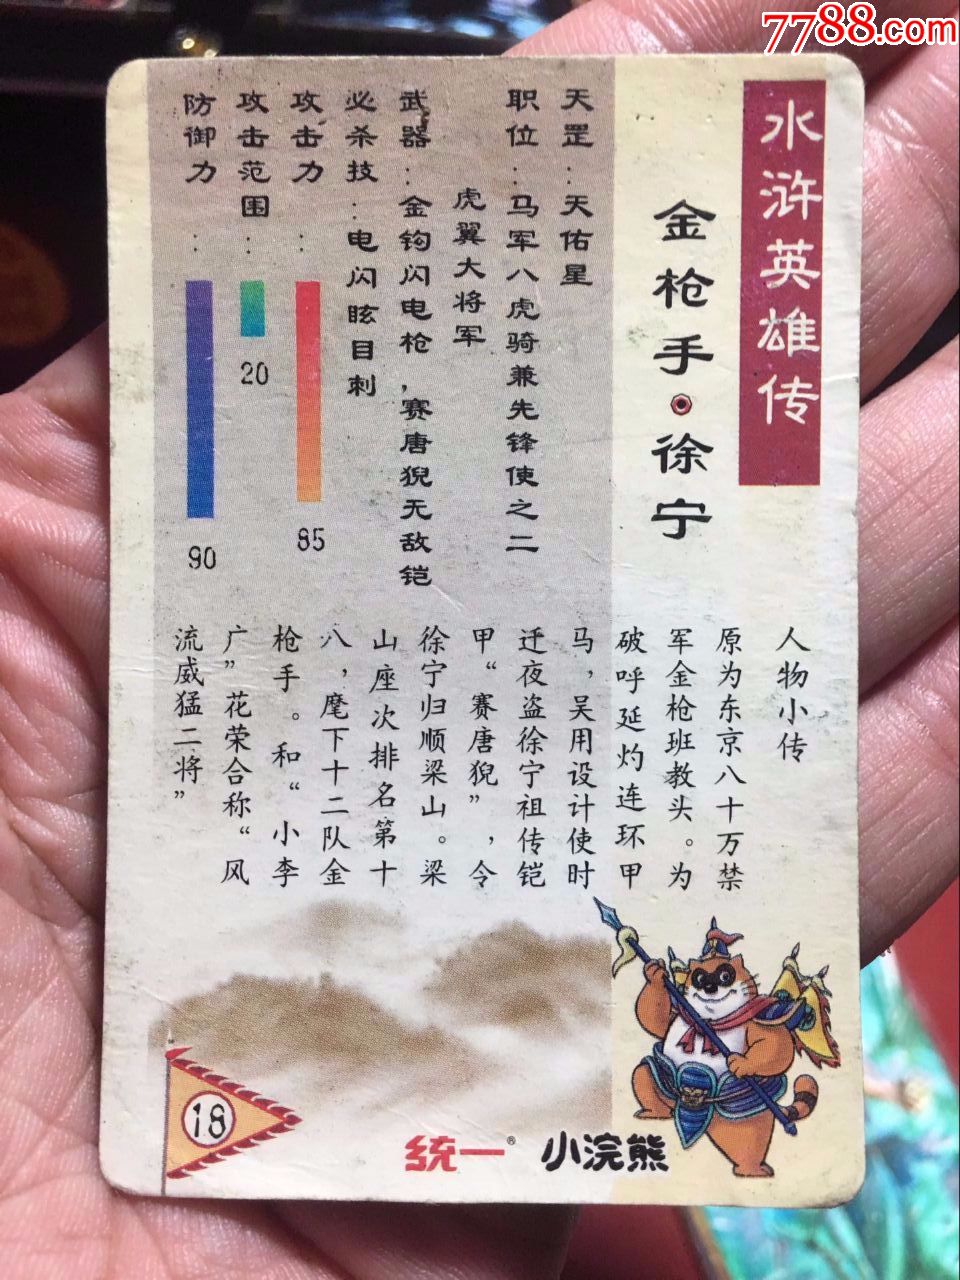 7788.com
水浒英雄传
金枪手·徐宁
天罡：天佑星
职位：马军八虎骑兼先锋使之二
虎翼大将军
武器：金钩闪电枪，赛唐猊无敌铠
必杀技：电闪眩目刺
攻击力：
85
攻击范围：
20
防御力：
90
人物小传
原为东京八十万禁
军金枪班教头。为
破呼延灼连环甲
马，吴用设计使时
迁夜盗徐宁祖传铠
甲“赛唐猊”，令
徐宁归顺梁山。梁
山座次排名第十
八，麾下十二队金
枪手。和“小李
广”花荣合称“风
流威猛二将”
18
统一® 小浣熊